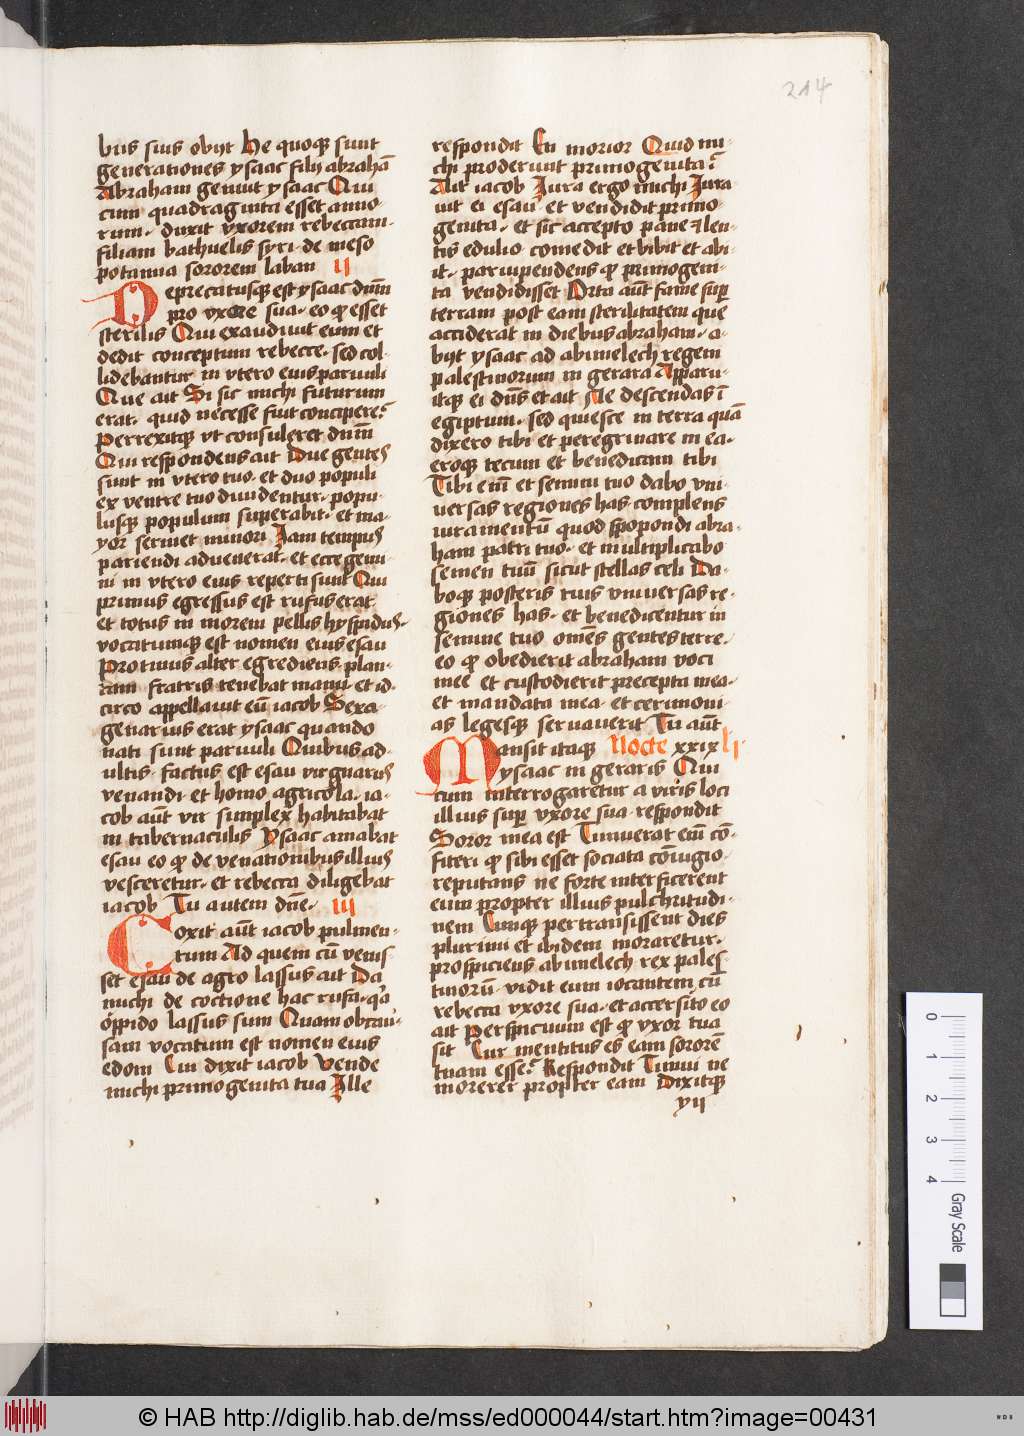 214
bus suis obijt He quoqꝫ sunt
generationes ysaac filij abrahā
Abraham genuit ysaac Qui
cum quadraginta esset anno-
rum · duxit vxorem rebeccam ·
filiam bathuelis syri · de meso
potamia sororem laban II
Deprecatusqꝫ est ysaac dnm̄
pro vxore sua · eo qꝫ esset
sterilis Qui exaudiuit eum et
dedit conceptum rebecce · sed col-
lidebantur in vtero eius paruuli
Que ait Si sic michi futurum
erat · quid necesse fuit concipere?
Perrexitqꝫ vt consuleret dnm̄
Qui respondens ait Due gentes
sunt in vtero tuo · et duo populi
ex ventre tuo diuidentur · popu-
lusqꝫ populum superabit · et ma-
yor seruiet minori Iam tempus
pariendi aduenerat · et ecce gemi-
ni in vtero eius reperti sunt Qui
primus egressus est rufus erat
et totus in morem pellis hyspidus ·
vocatumqꝫ est nomen eius esau
Protinus alter egrediens · plan-
tam fratris tenebat manu · et id-
circo appellauit eū iacob Sexa-
genarius erat ysaac quando
nati sunt paruuli Quibus ad-
ultis · factus est esau vir gnarus
venandi · et homo agricola · ia-
cob aūt vir simplex habitabat
in tabernaculis Ysaac amabat
esau eo qꝫ de venationibus illius
vesceretur · et rebecca diligebat
iacob Tu autem dn̄e · III
Coxit aūt iacob pulmen-
tum Ad quem cū venis-
set esau de agro lassus ait Da
michi de coctione hac rufa · q̄a
oppido lassus sum Quam ob cau-
sam vocatum est nomen eius
edom Cui dixit iacob Vende
michi primogenita tua Ille
respondit En morior Quid mi-
chi proderunt primogenita?
Ait iacob Iura ergo michi Iura
uit ei esau · et vendidit primo-
genita · et sic accepto pane ⁊ len-
tis edulio comedit et bibit et abi-
it · paruipendens qꝫ primogeni-
ta vendidisset Orta aūt fame sup̄
terram post eam sterilitatem que
acciderat in diebus abraham · a-
bijt ysaac ad abimelech regem
palestinorum in gerara Apparu-
itqꝫ ei dn̄s et ait Ne descendas ī
egiptum · sed quiesce in terra quā
dixero tibi et peregrinare in ea ·
eroqꝫ tecum et benedicam tibi
Tibi enī et semini tuo dabo vni-
uersas regiones has · complens
iuramentū quod spopondi abra-
ham patri tuo · et multiplicabo
semen tuū sicut stellas celi Da-
boqꝫ posteris tuis vniuersas re-
giones has · et benedicentur in
semine tuo om̄es gentes terre ·
eo qꝫ obedierit abraham voci
mee et custodierit precepta mea ·
et mandata mea · et cerimoni-
as legesqꝫ seruauerit Tu aūt
Mansit itaqꝫ Nocte xxix lı
ysaac in geraris Qui
cum interrogaretur a viris loci
illius sup̄ vxore sua · respondit
Soror mea est Timuerat enī cō-
fiteri qꝫ sibi esset sociata cōiugio ·
reputans ne forte interficerent
eum propter illius pulchritudi-
nem Cumqꝫ pertransissent dies
plurimi et ibidem moraretur ·
prospiciens abimelech rex pales-
tinorū · vidit eum iocantem cū
rebecca vxore sua · et accersito eo
ait Perspicuum est qꝫ vxor tua
sit Cur mentitus es eam sororē
tuam esse? Respondit Timui ne
morerer propter eam Dixitqꝫ
yii
0 1 2 3 4 Gray Scale
© HAB http://diglib.hab.de/mss/ed000044/start.htm?image=00431